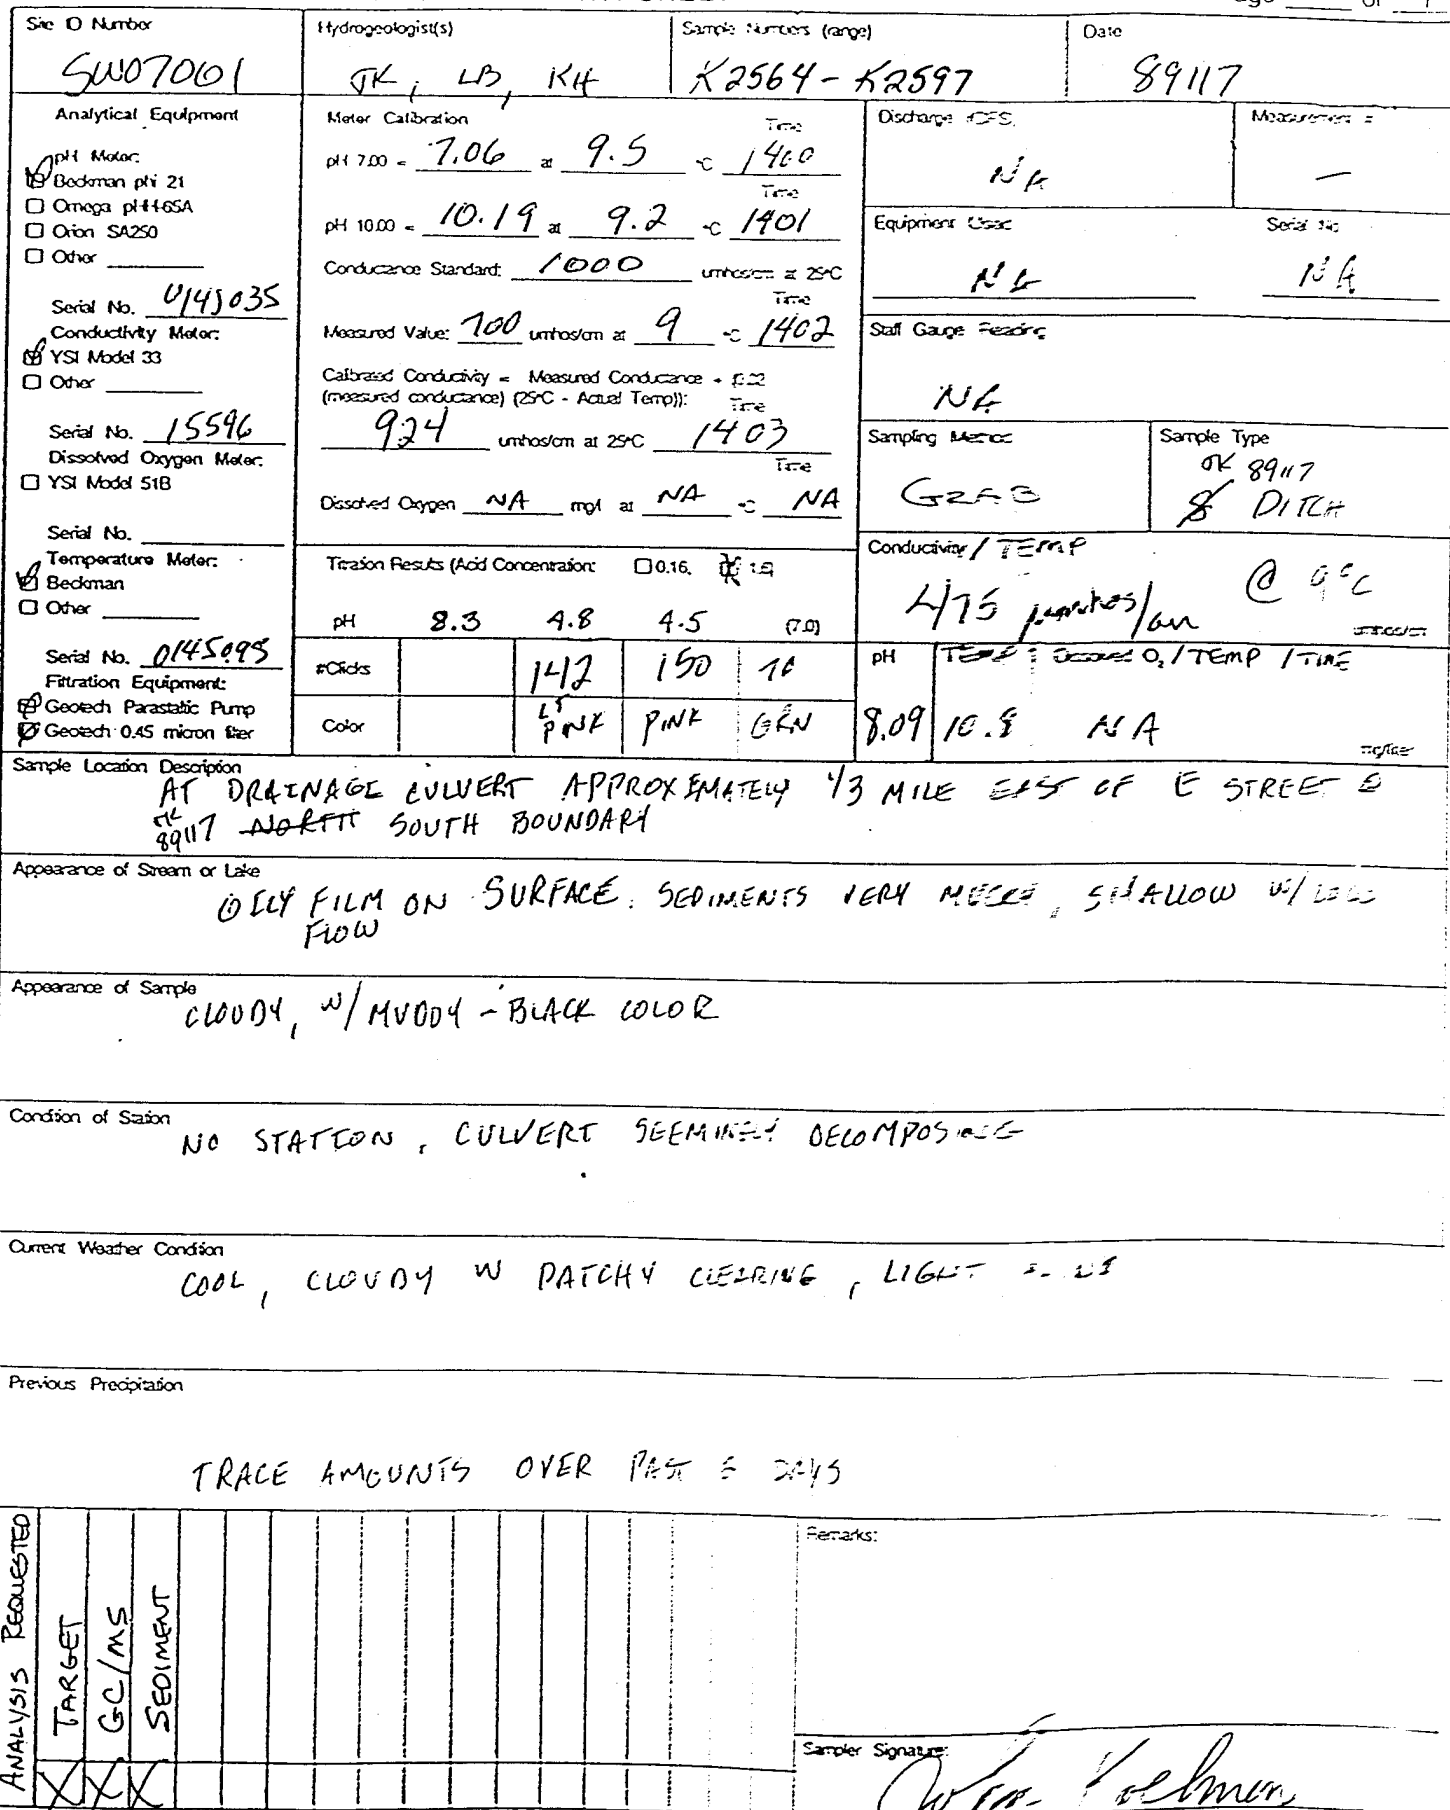 Site ID Number
SW07001
Hydrogeologist(s)
JK, LB, KH
Sample Numbers (range)
K2564 - K2597
Date
89117
Analytical Equipment
pH Meter:
Beckman phi 21
Omega pHH-65A
Orion SA250
Other
Serial No. 0145035
Conductivity Meter:
YSI Model 33
Other
Serial No. 15596
Dissolved Oxygen Meter:
YSI Model 51B
Serial No.
Temperature Meter:
Beckman
Other
Serial No. 0145095
Filtration Equipment:
Geotech Parastatic Pump
Geotech 0.45 micron filter
Meter Calibration
Time
pH 7.00 = 7.06 at 9.5 °C 1400
Time
pH 10.00 = 10.19 at 9.2 °C 1401
Conductance Standard: 1000 umhos/cm at 25°C
Time
Measured Value: 700 umhos/cm at 9 °C 1402
Calibrated Conductivity = Measured Conductance + (0.02
(measured conductance) (25°C - Actual Temp)):
Time
924 umhos/cm at 25°C 1403
Time
Dissolved Oxygen NA mg/l at NA °C NA
Titration Results (Acid Concentration: 0.16, 1.6)
pH 8.3 4.8 4.5 (7.0)
#Clicks 142 150 70
Color LT PINK PINK GRN
Discharge (CFS)
NA
Measurement #
—
Equipment Used
NA
Serial No
NA
Staff Gauge Reading
NA
Sampling Method
GRAB
Sample Type
JK 89117
DITCH
Conductivity / TEMP
475 µmhos/cm @ 9°C
umhos/cm
pH TEMP Dissolved O2 / TEMP / TIME
8.09 10.8 NA
mg/liter
Sample Location Description
AT DRAINAGE CULVERT APPROXIMATELY 1/3 MILE EAST OF E STREET @
JK 89117 NORTH SOUTH BOUNDARY
Appearance of Stream or Lake
OILY FILM ON SURFACE. SEDIMENTS VERY MUCKY, SHALLOW W/
FLOW
Appearance of Sample
CLOUDY, W/ MUDDY - BLACK COLOR
Condition of Station
NO STATION, CULVERT SEEMINGLY DECOMPOSING
Current Weather Condition
COOL, CLOUDY W PATCHY CLEARING, LIGHT
Previous Precipitation
TRACE AMOUNTS OVER PAST DAYS
ANALYSIS REQUESTED
TARGET
GC/MS
SEDIMENT
X X X
Remarks:
Sampler Signature: